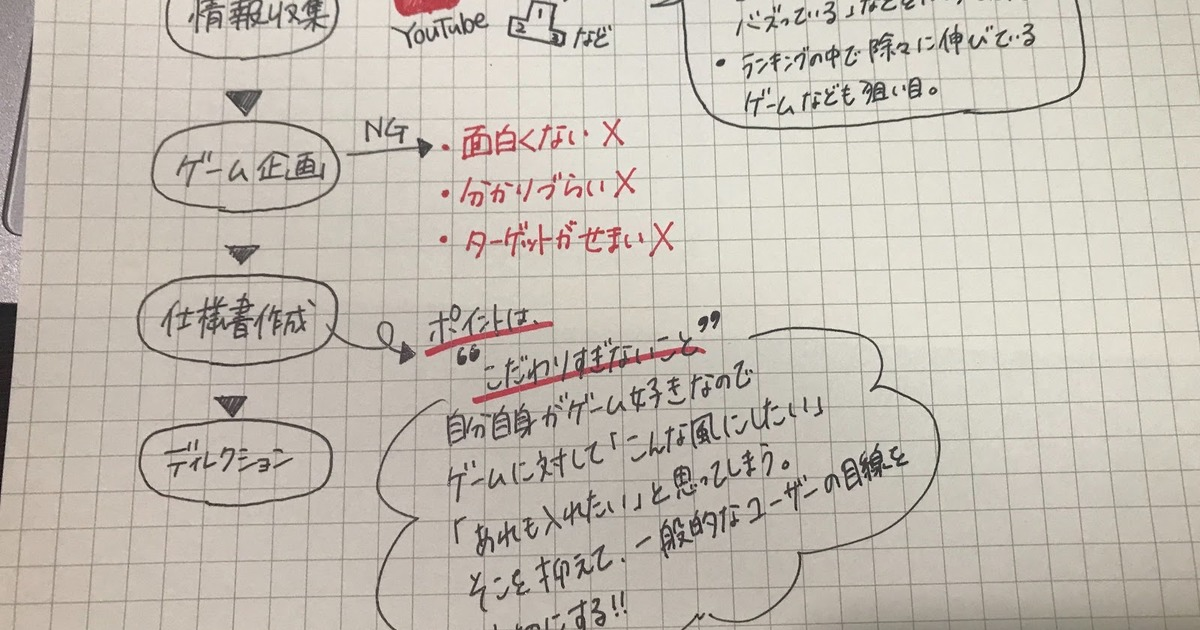 情報収集
YouTube
1
2 3
など
バズっている」などを
・ランキングの中で除々に伸びている
ゲームなども狙い目。
ゲーム企画
NG
・面白くない X
・分かりづらい X
・ターゲットがせまい X
仕様書作成
ポイントは、
“こだわりすぎないこと”
自分自身がゲーム好きなので
ゲームに対して「こんな風にしたい」
「あれも入れたい」と思ってしまう。
そこを抑えて、一般的なユーザーの目線を
にする!!
ディレクション